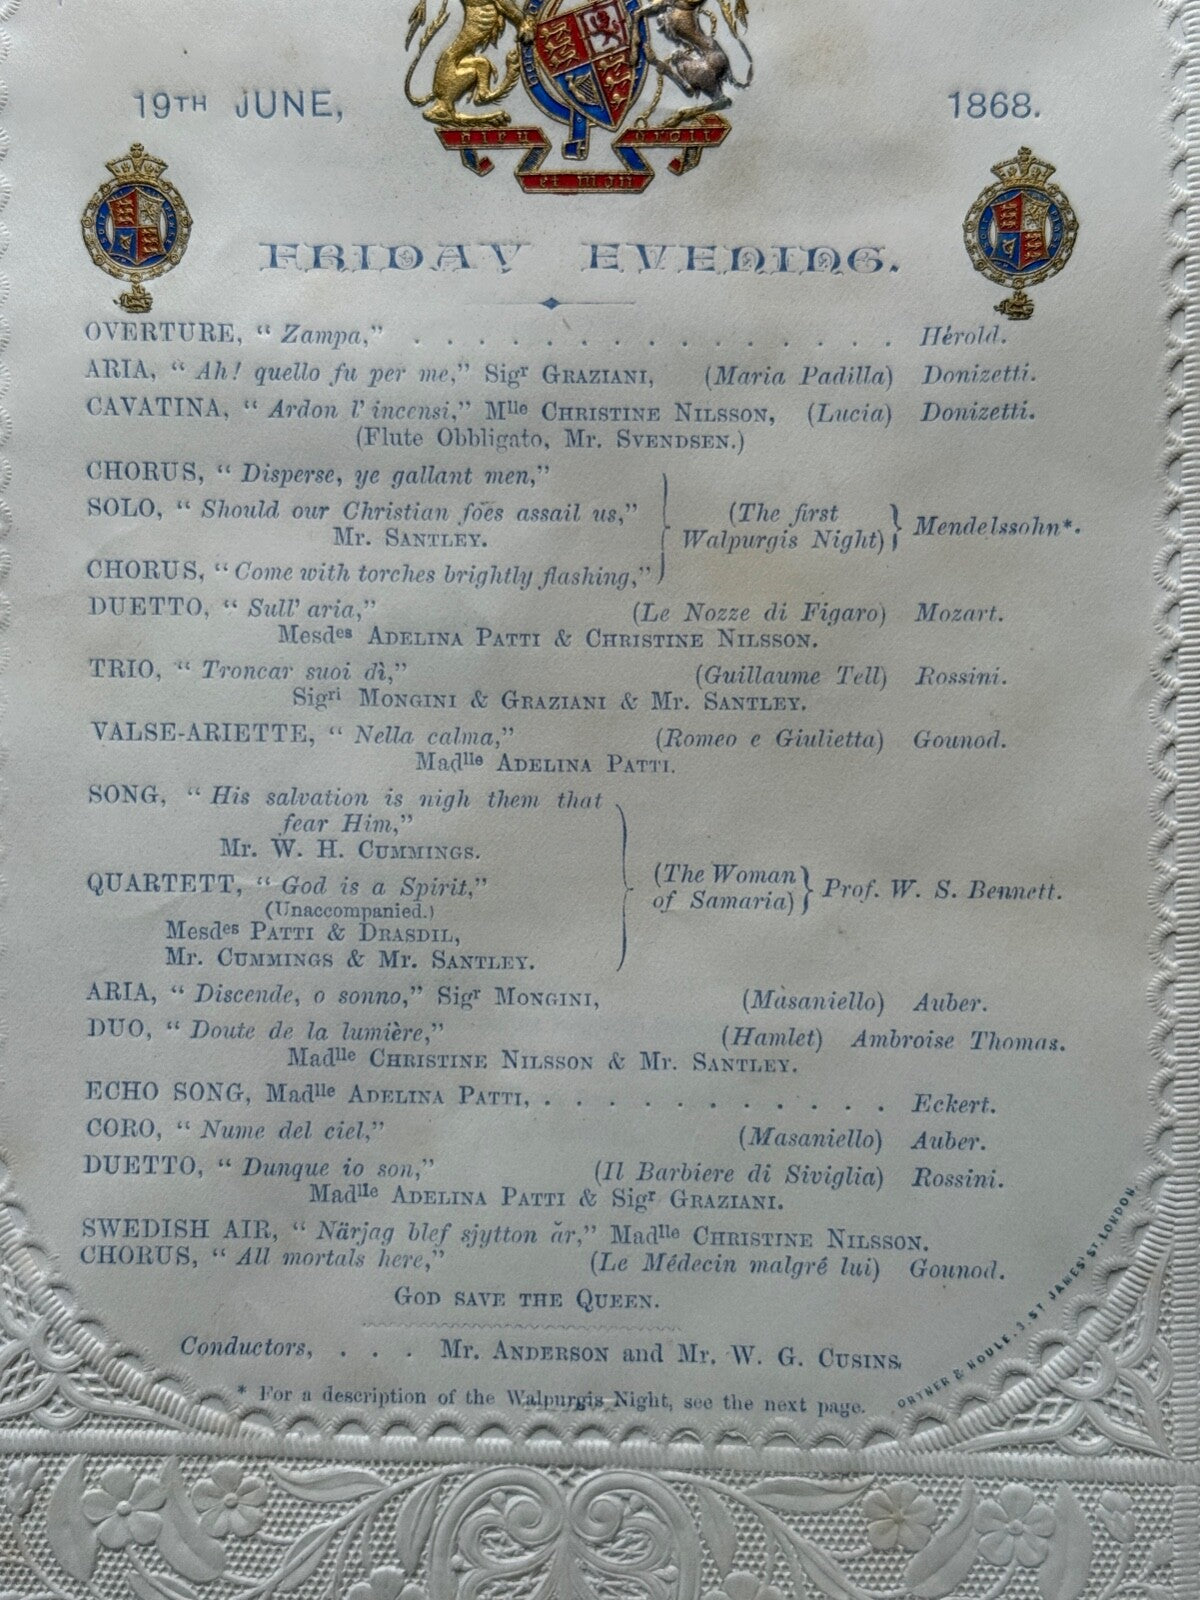 19TH JUNE, 1868.
DIEU ET MON DROIT
FRIDAY EVENING.
OVERTURE, “ Zampa,” . . . . . . . . . . . . . . . . Hérold.
ARIA, “ Ah! quello fu per me,” Sigr GRAZIANI, (Maria Padilla) Donizetti.
CAVATINA, “ Ardon l’ incensi,” Mlle CHRISTINE NILSSON, (Lucia) Donizetti.
(Flute Obbligato, Mr. SVENDSEN.)
CHORUS, “ Disperse, ye gallant men,”
SOLO, “ Should our Christian föes assail us,”
Mr. SANTLEY.
CHORUS, “ Come with torches brightly flashing,”
(The first
Walpurgis Night) Mendelssohn*.
DUETTO, “ Sull’ aria,” (Le Nozze di Figaro) Mozart.
Mesdes ADELINA PATTI & CHRISTINE NILSSON.
TRIO, “ Troncar suoi dì,” (Guillaume Tell) Rossini.
Sigri MONGINI & GRAZIANI & Mr. SANTLEY.
VALSE-ARIETTE, “ Nella calma,” (Romeo e Giulietta) Gounod.
Madlle ADELINA PATTI.
SONG, “ His salvation is nigh them that
fear Him,”
Mr. W. H. CUMMINGS.
QUARTETT, “ God is a Spirit,”
(Unaccompanied.)
Mesdes PATTI & DRASDIL,
Mr. CUMMINGS & Mr. SANTLEY.
(The Woman
of Samaria) Prof. W. S. Bennett.
ARIA, “ Discende, o sonno,” Sigr MONGINI, (Masaniello) Auber.
DUO, “ Doute de la lumière,” (Hamlet) Ambroise Thomas.
Madlle CHRISTINE NILSSON & Mr. SANTLEY.
ECHO SONG, Madlle ADELINA PATTI, . . . . . . . . . . . . Eckert.
CORO, “ Nume del ciel,” (Masaniello) Auber.
DUETTO, “ Dunque io son,” (Il Barbiere di Siviglia) Rossini.
Madlle ADELINA PATTI & Sigr GRAZIANI.
SWEDISH AIR, “ Närjag blef sjytton år,” Madlle CHRISTINE NILSSON.
CHORUS, “ All mortals here,” (Le Médecin malgré lui) Gounod.
GOD SAVE THE QUEEN.
Conductors, . . . Mr. ANDERSON and Mr. W. G. CUSINS.
* For a description of the Walpurgis Night, see the next page.
ORTNER & HOULE, 3, ST JAMES' ST. LONDON.